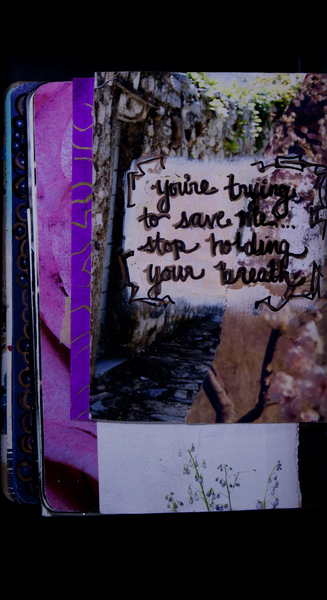 you're trying
to save me...
stop holding
your breath